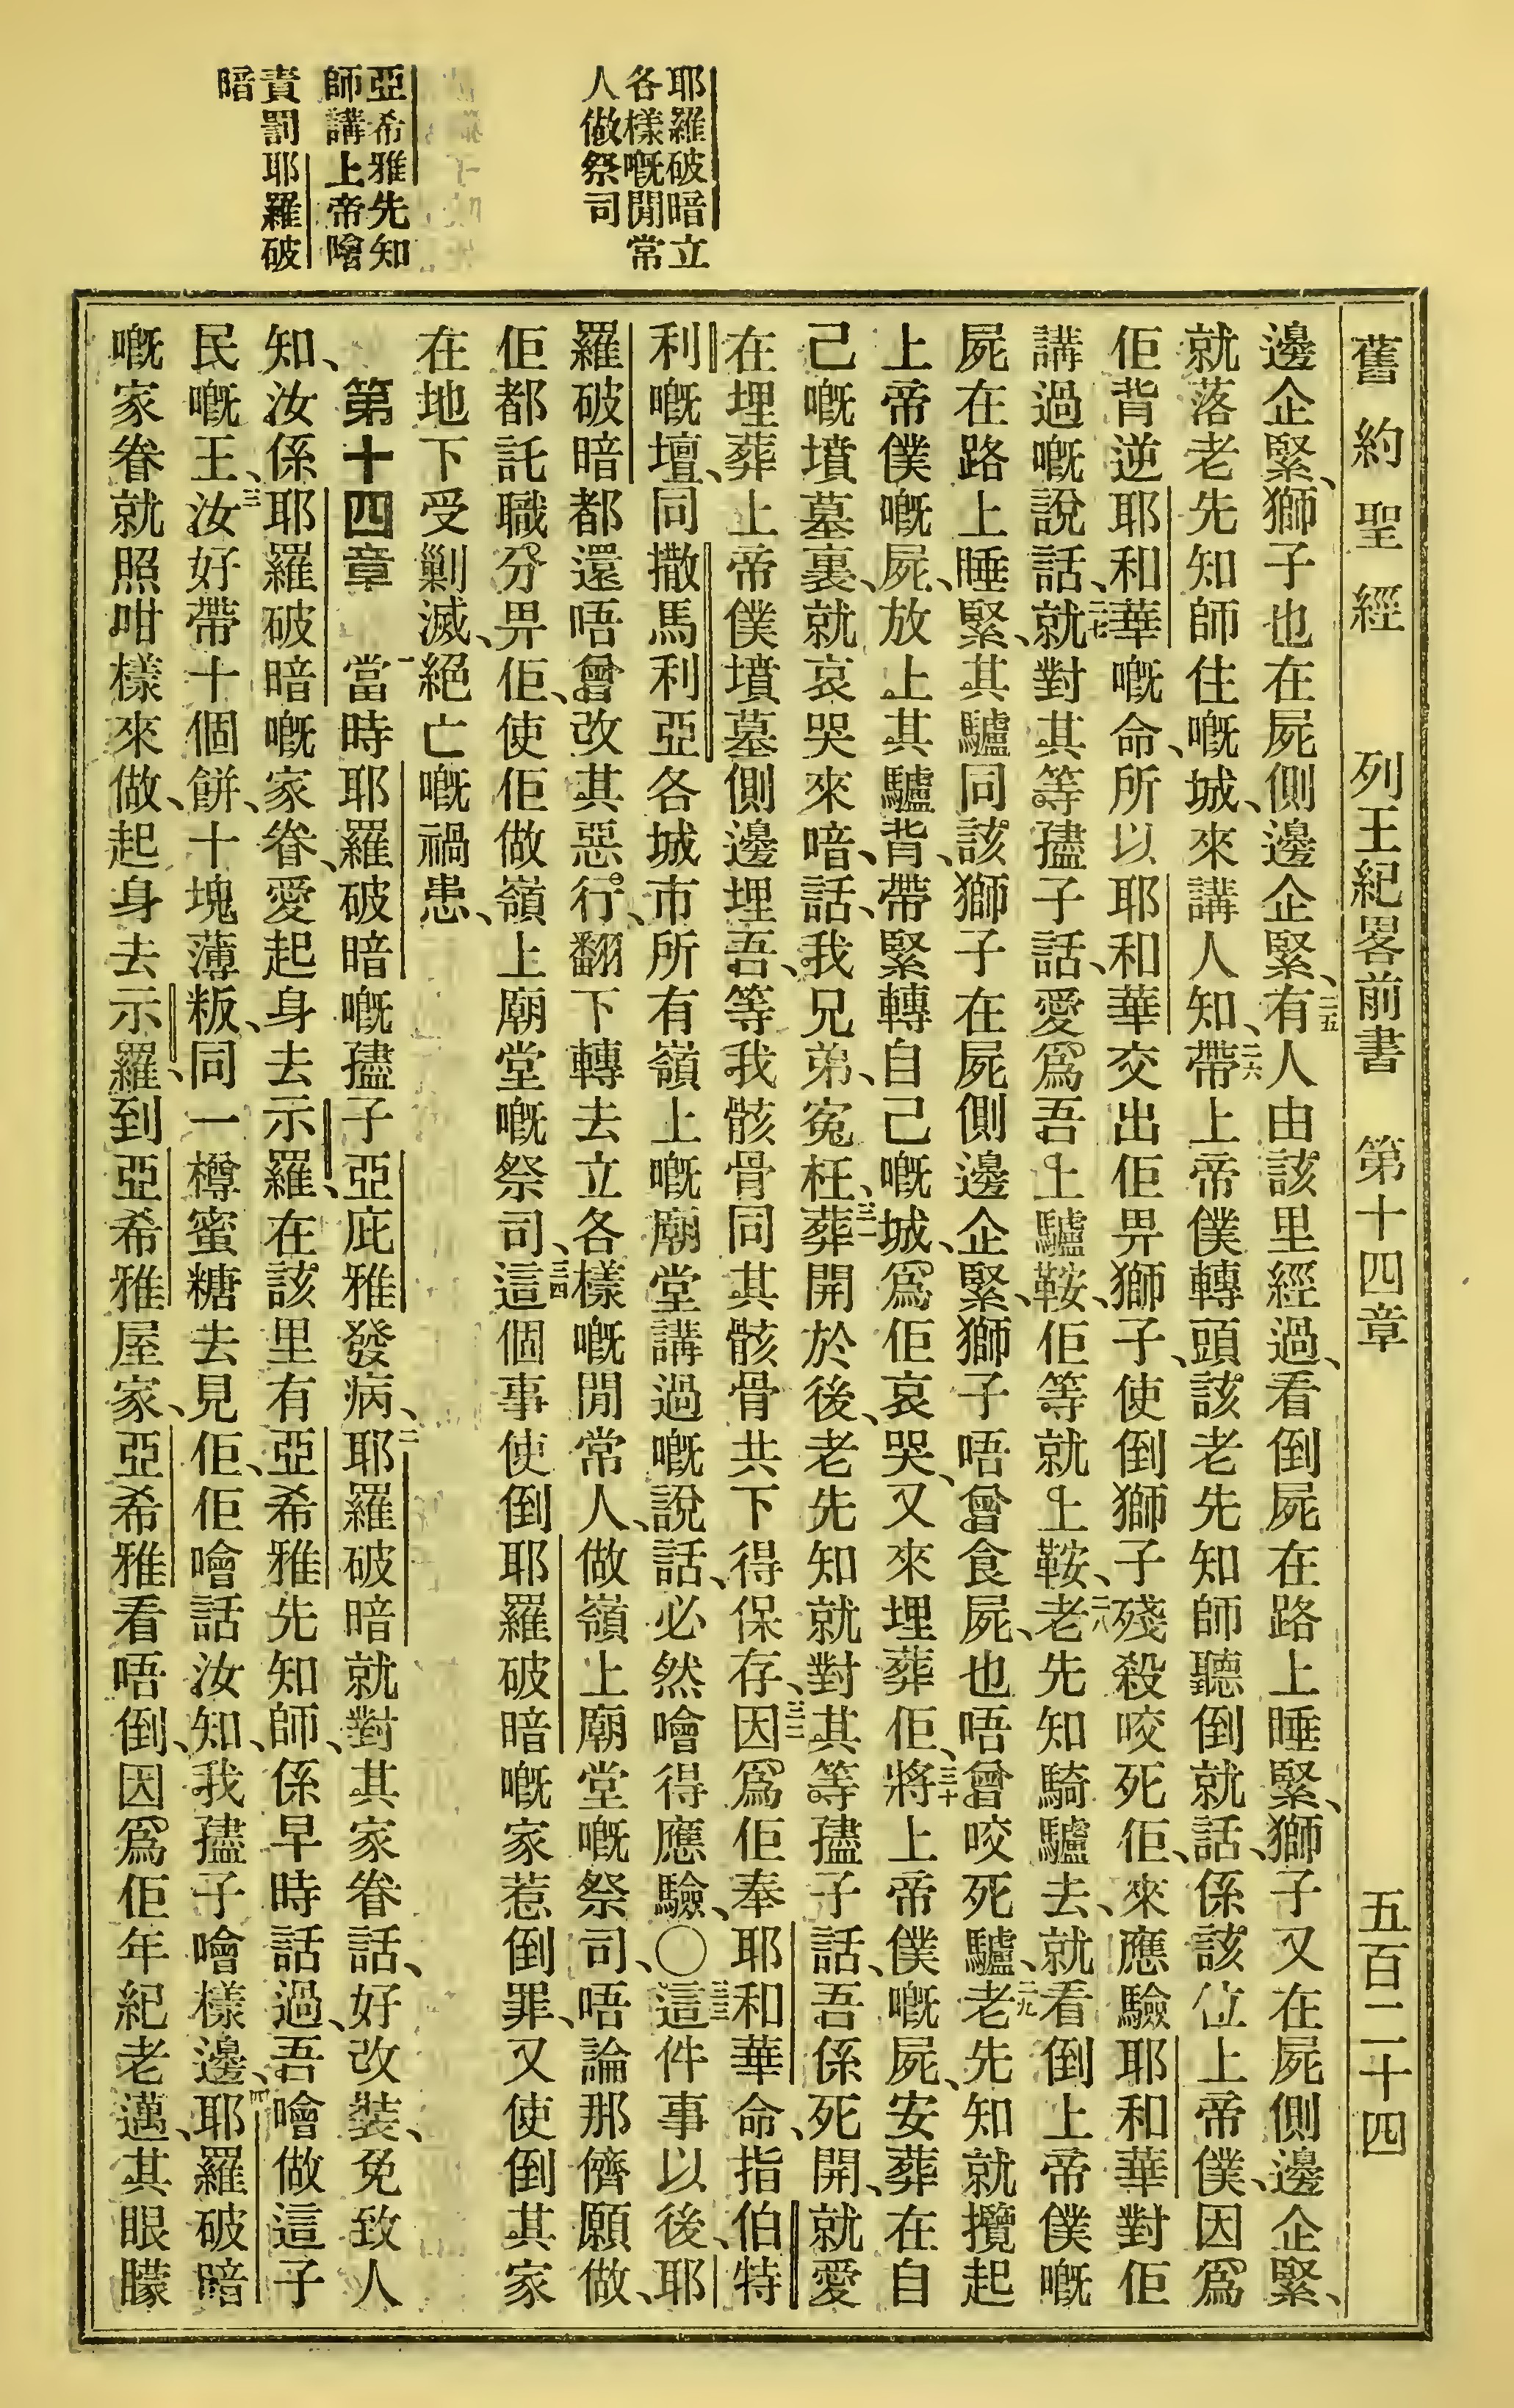 舊約聖經　列王紀畧前書　第十四章　五百二十四
耶羅破暗立
各樣嘅閒常
人做祭司
亞希雅先知
師講上帝噲
責罰耶羅破
暗
邊企緊、獅子也在屍側邊企緊、二五有人由該里經過、看倒屍在路上睡緊、獅子又在屍側邊企緊、
就落老先知師住嘅城、來講人知、二六帶上帝僕轉頭該老先知師聽倒就話、係該位上帝僕、因爲
佢背逆耶和華嘅命、所以耶和華交出佢畀獅子、使倒獅子殘殺咬死佢、來應驗耶和華對佢
講過嘅說話、二七就對其等孻子話、愛爲吾上驢鞍、佢等就上鞍、二八老先知騎驢去、就看倒上帝僕嘅
屍在路上睡緊、其驢同該獅子在屍側邊企緊、獅子唔曾食屍、也唔曾咬死驢、二九老先知就攬起
上帝僕嘅屍、放上其驢背、帶緊轉自己嘅城、爲佢哀哭、又來埋葬佢、三十將上帝僕嘅屍、安葬在自
己嘅墳墓裏、就哀哭來喑、話、我兄弟、寃枉、三一葬開於後、老先知就對其等孻子話、吾係死開、就愛
在埋葬上帝僕墳墓側邊埋吾、等我骸骨同其骸骨共下得保存、三二因爲佢奉耶和華命、指伯特
利嘅壇、同撒馬利亞各城市所有嶺上嘅廟堂講過嘅說話、必然噲得應驗、〇三三這件事以後、耶
羅破暗都還唔曾改其惡行、翻下轉去立各樣嘅閒常人、做嶺上廟堂嘅祭司、唔論那儕願做、
佢都託職分畀佢、使佢做嶺上廟堂嘅祭司、三四這個事使倒耶羅破暗嘅家惹倒罪、又使倒其家
在地下受剿滅、絕亡嘅禍患、
第十四章　一當時耶羅破暗嘅孻子亞庇雅發病、二耶羅破暗就對其家眷話、好改裝、免致人
知、汝係耶羅破暗嘅家眷、愛起身去示羅、在該里有亞希雅先知師、係早時話過、吾噲做這子
民嘅王、三汝好帶十個餅、十塊薄粄、同一樽蜜糖去見佢、佢噲話汝知、我孻子噲樣邊、四耶羅破暗
嘅家眷就照咁樣來做、起身去示羅、到亞希雅屋家、亞希雅看唔倒、因爲佢年紀老邁、其眼矇